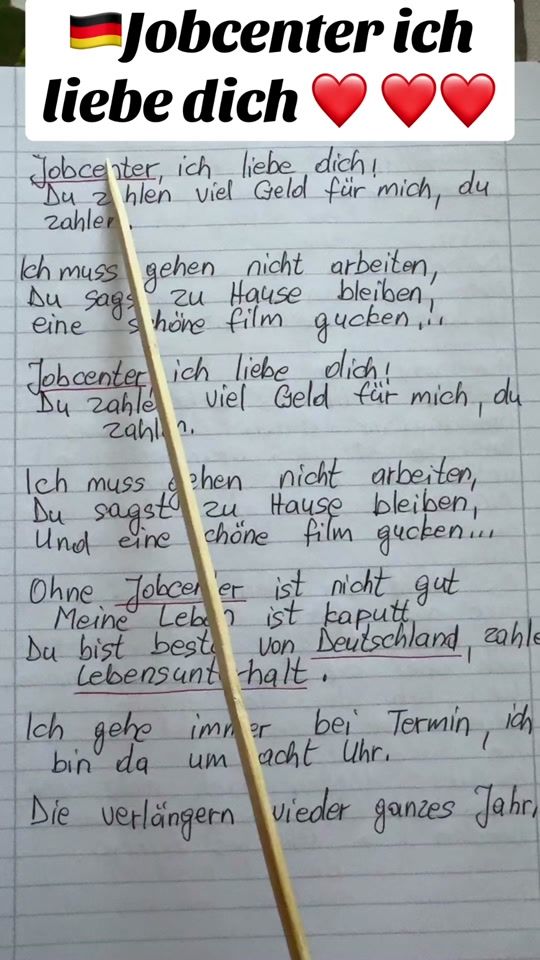 🇩🇪Jobcenter ich
liebe dich ❤️ ❤️❤️
Jobcenter, ich liebe dich!
Du zahlen viel Geld für mich, du
zahlen.
Ich muss gehen nicht arbeiten,
Du sags zu Hause bleiben,
eine schöne film gucken,!!
Jobcenter, ich liebe dich!
Du zahlen viel Geld für mich, du
zahlen.
Ich muss gehen nicht arbeiten,
Du sagst zu Hause bleiben,
Und eine schöne film gucken...
Ohne Jobcenter ist nicht gut
Meine Leben ist kaputt,
Du bist beste von Deutschland, zahle
Lebensunterhalt.
Ich gehe immer bei Termin, ich
bin da um acht Uhr.
Die verlängern wieder ganzes Jahr,